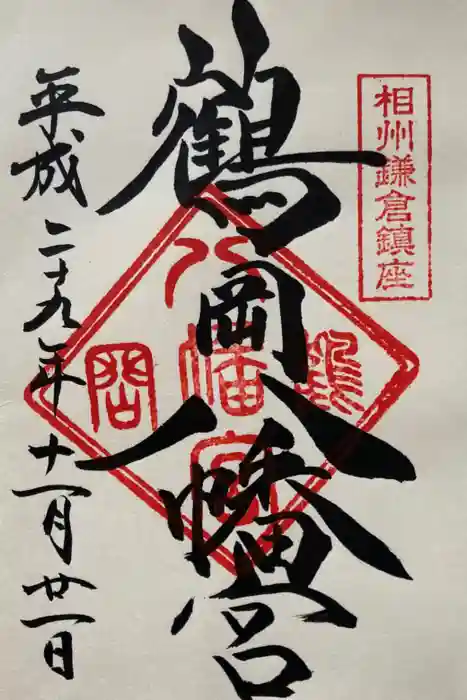 相州鎌倉鎮座
鶴岡八幡宮
鶴岡
八幡宮
平成二十九年十一月廿一日